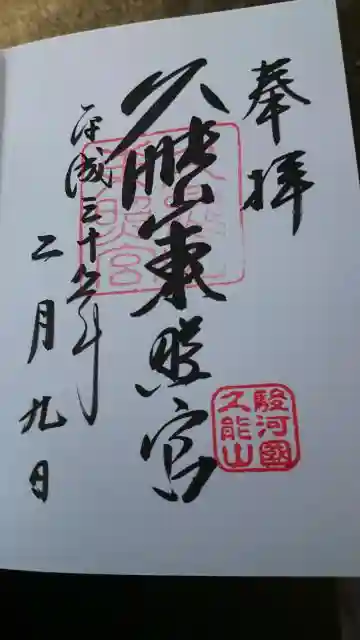 奉拝
久能山東照宮
駿河國
久能山
平成三十一年
二月九日